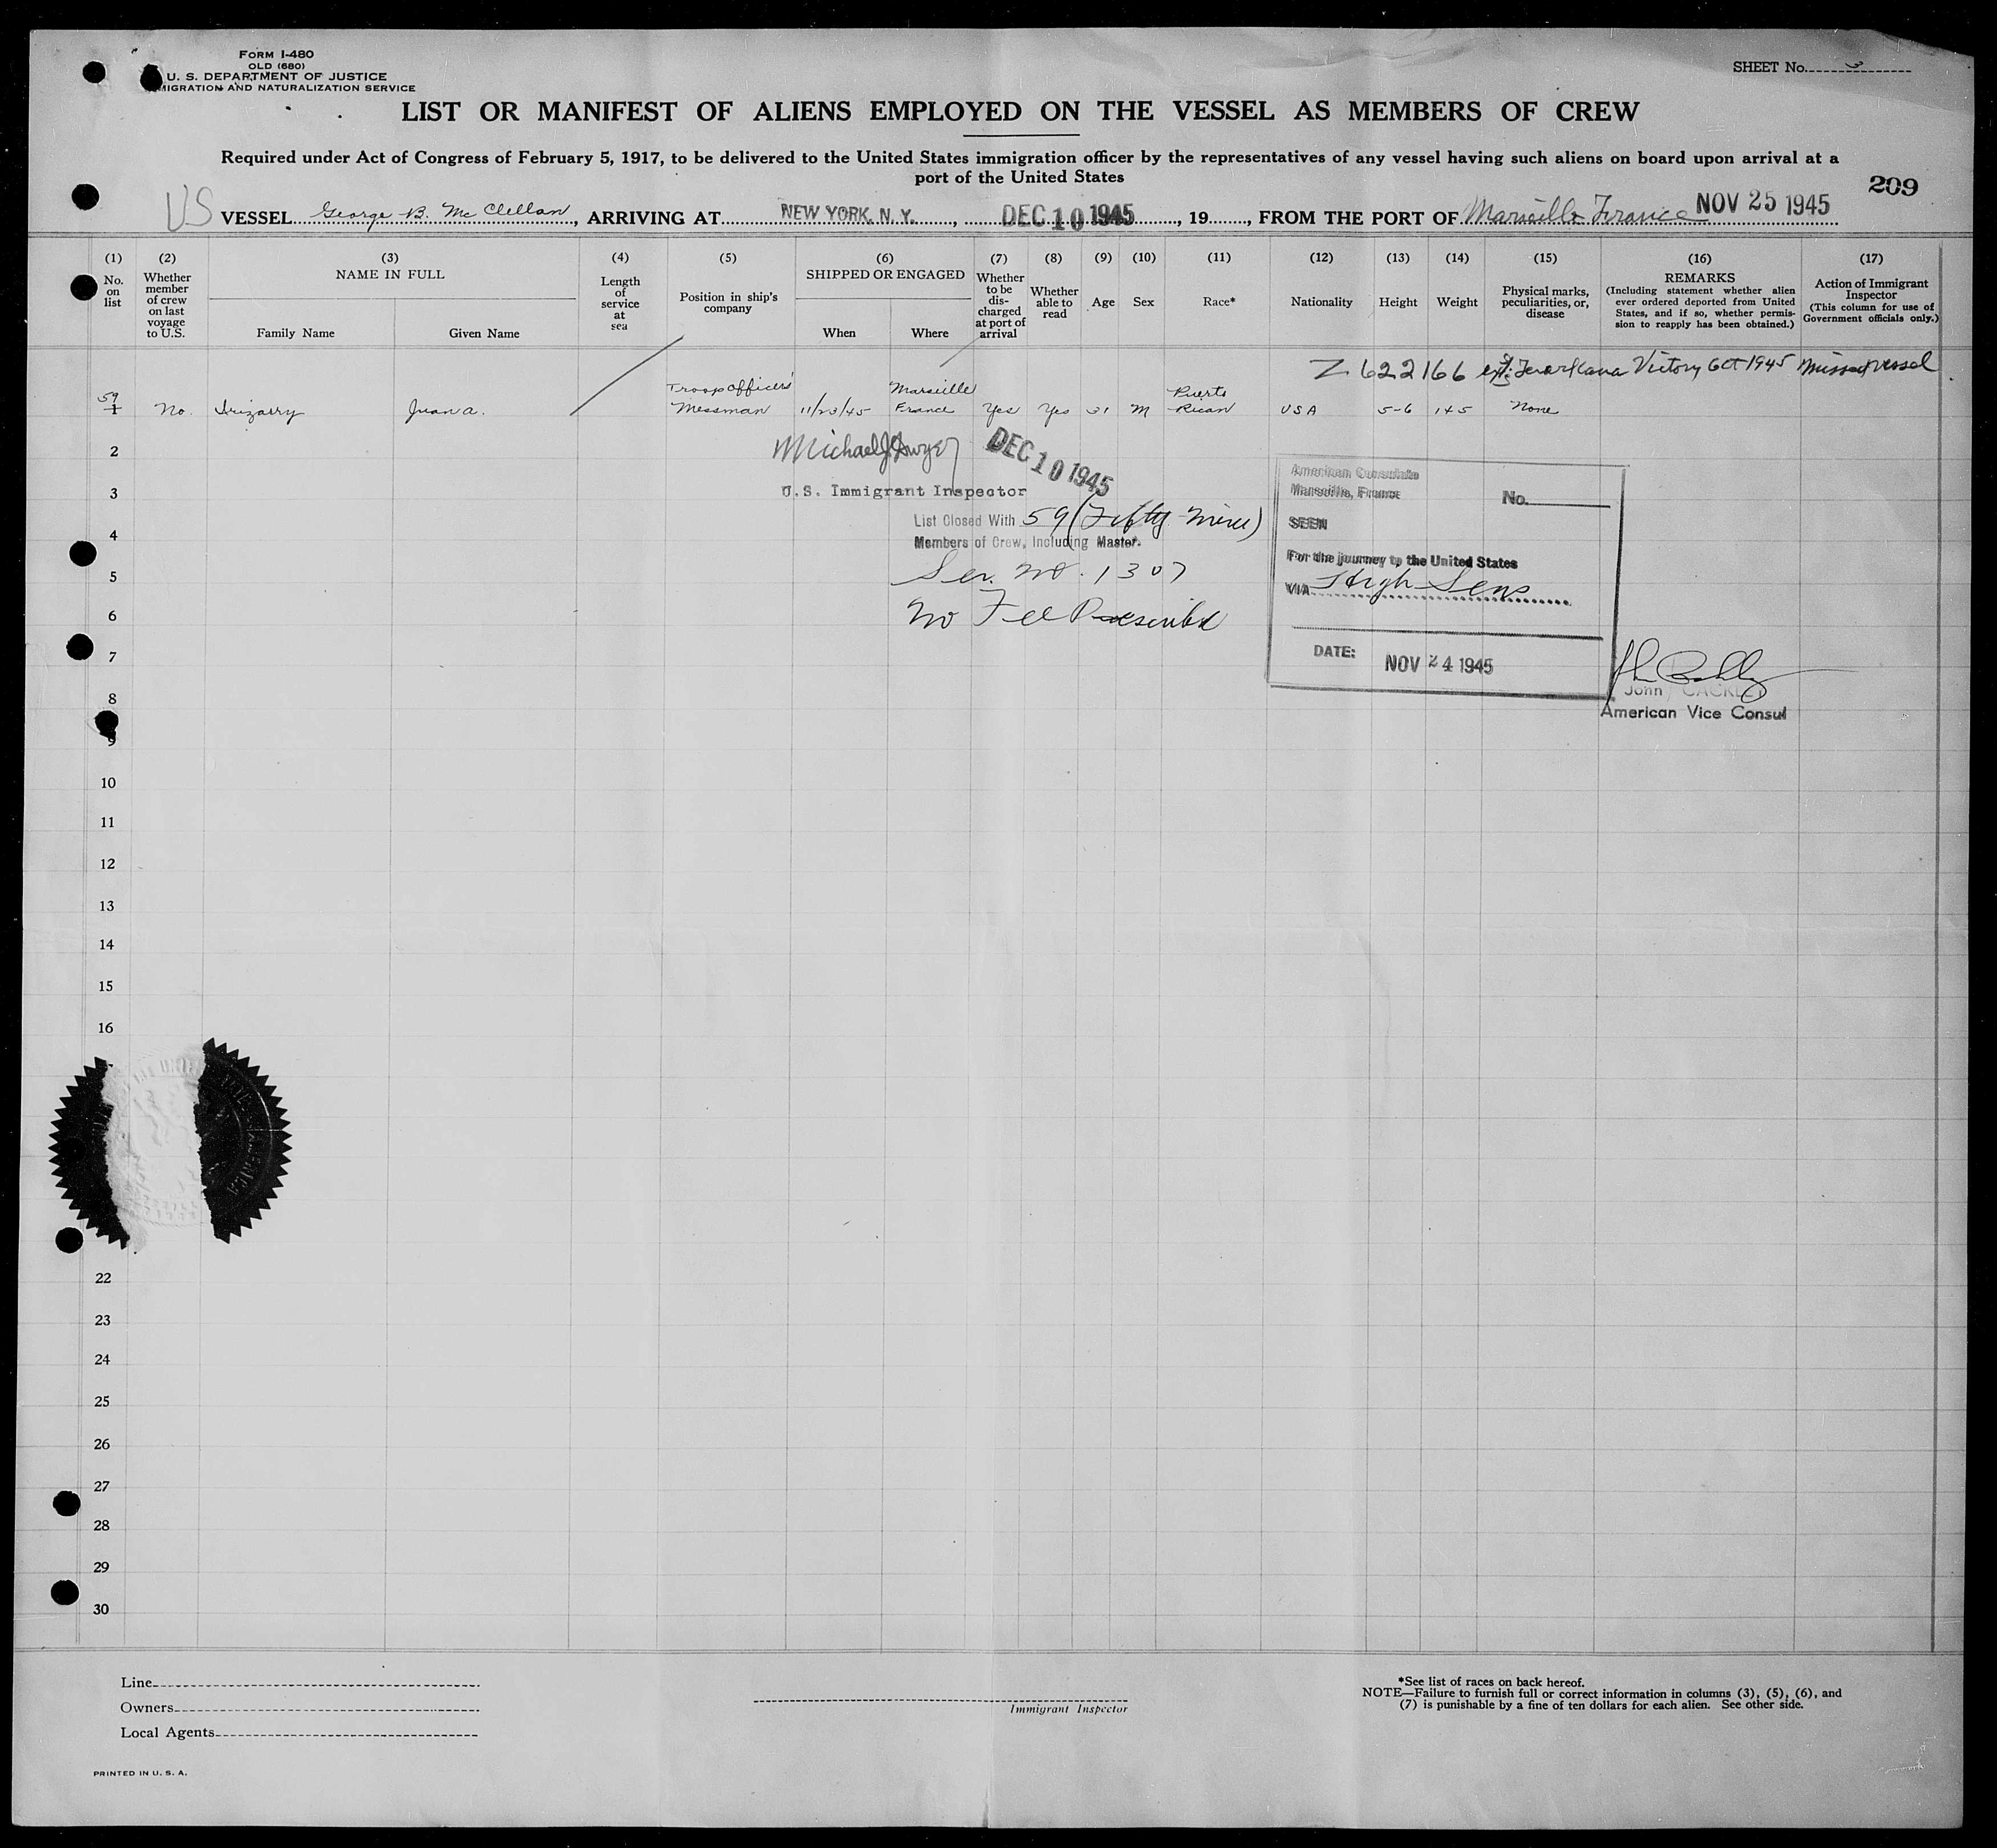 FORM I-480
OLD (680)
U. S. DEPARTMENT OF JUSTICE
MIGRATION AND NATURALIZATION SERVICE
SHEET No. 3
LIST OR MANIFEST OF ALIENS EMPLOYED ON THE VESSEL AS MEMBERS OF CREW
Required under Act of Congress of February 5, 1917, to be delivered to the United States immigration officer by the representatives of any vessel having such aliens on board upon arrival at a
port of the United States
209
US VESSEL George B. McClellan, ARRIVING AT NEW YORK, N. Y., DEC 10 1945, 19, FROM THE PORT OF Marseille France NOV 25 1945
(1) No. on list
(2) Whether member of crew on last voyage to U.S.
(3) NAME IN FULL
Family Name
Given Name
(4) Length of service at sea
(5) Position in ship's company
(6) SHIPPED OR ENGAGED
When
Where
(7) Whether to be discharged at port of arrival
(8) Whether able to read
(9) Age
(10) Sex
(11) Race*
(12) Nationality
(13) Height
(14) Weight
(15) Physical marks, peculiarities, or, disease
(16) REMARKS
(Including statement whether alien ever ordered deported from United States, and if so, whether permission to reapply has been obtained.)
(17) Action of Immigrant Inspector
(This column for use of Government officials only.)
Z 622166 Victory Oct 1945 missed vessel
59
1 No. Irizarry Juan A. Troop Officers' Messman 11/23/45 Marseille France Yes Yes 31 M Puerto Rican USA 5-6 145 None
2 Michael J. Dwyer DEC 10 1945
3 U.S. Immigrant Inspector
List Closed With 59 (Fifty-nine)
4 Members of Crew, Including Master.
5 Ser. No. 1307
6 No Fee Prescribed
American Consulate
Marseille, France
No.
SEEN
For the journey to the United States
VIA High Seas
DATE: NOV 24 1945
John CACKLEY
American Vice Consul
7
8
9
10
11
12
13
14
15
16
22
23
24
25
26
27
28
29
30
Line
Owners
Local Agents
Immigrant Inspector
*See list of races on back hereof.
NOTE—Failure to furnish full or correct information in columns (3), (5), (6), and
(7) is punishable by a fine of ten dollars for each alien. See other side.
PRINTED IN U. S. A.